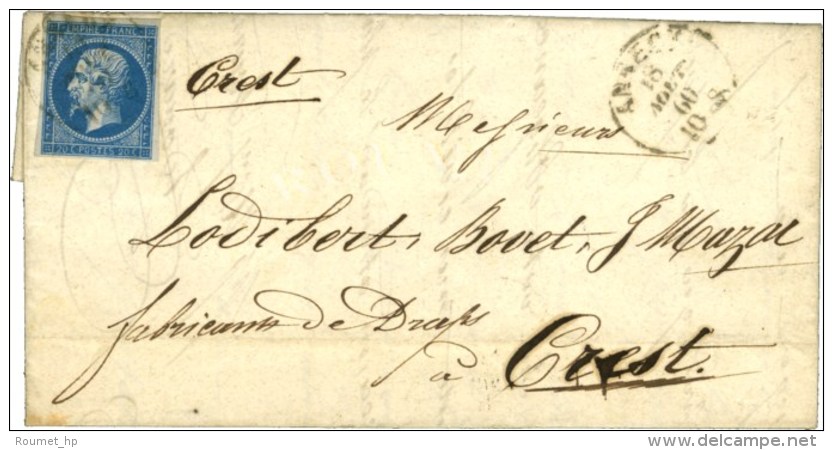 EMPIRE FRANC
20 C POSTES 20 C
Crest
ANNECY
18
AOUT
60
Messieurs
Lodibert, Bovet, & Mazal
fabricants de Draps
à Crest.
Roumet_hp
delcampe.net